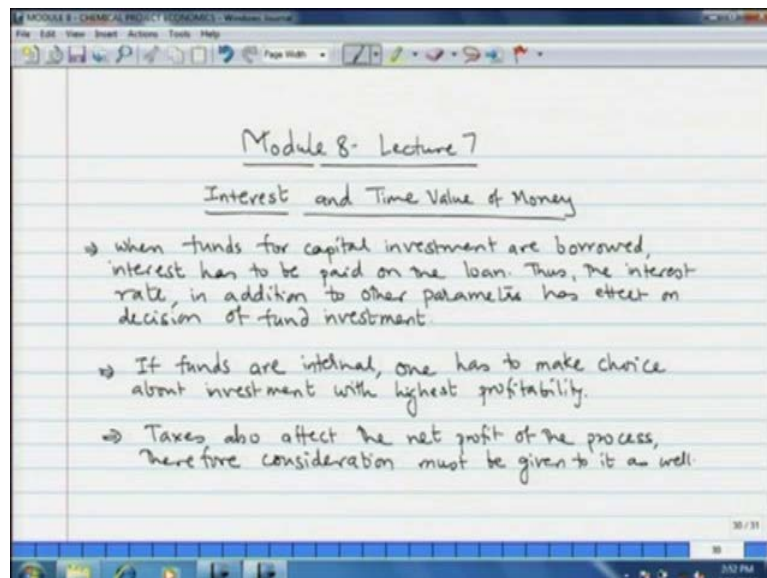 MODULE 8 - CHEMICAL PROJECT ECONOMICS - Windows Journal
File Edit View Insert Actions Tools Help
Page Width
Module 8- Lecture 7
Interest and Time Value of Money
⇒ When funds for capital investment are borrowed,
interest has to be paid on the loan. Thus, the interest
rate, in addition to other parameters has effect on
decision of fund investment.
⇒ If funds are internal, one has to make choice
about investment with highest profitability.
⇒ Taxes also affect the net profit of the process,
Therefore consideration must be given to it as well.
30 / 31
30
2:52 PM